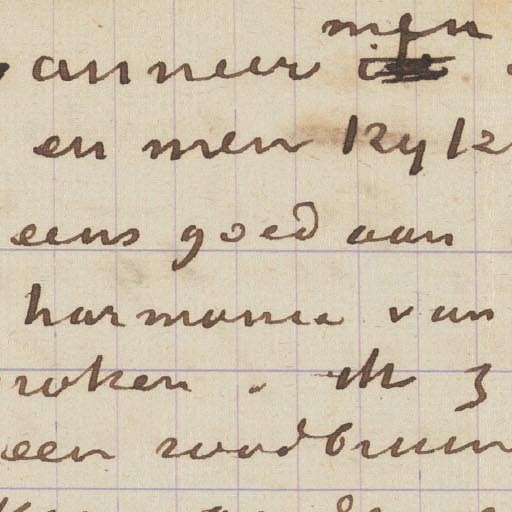 men
anneer
en men kyk
eens goed aan
harmonie van
roken. ik z
een roodbruin